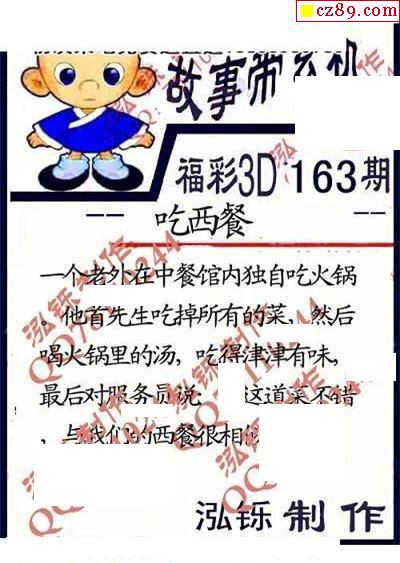 cz89.com
故事带玄机
福彩3D 163期
吃西餐
一个老外在中餐馆内独自吃火锅
。他首先生吃掉所有的菜，然后
喝火锅里的汤，吃得津津有味，
最后对服务员说： 这道菜不错
，与我们的西餐很相似
泓铄制作